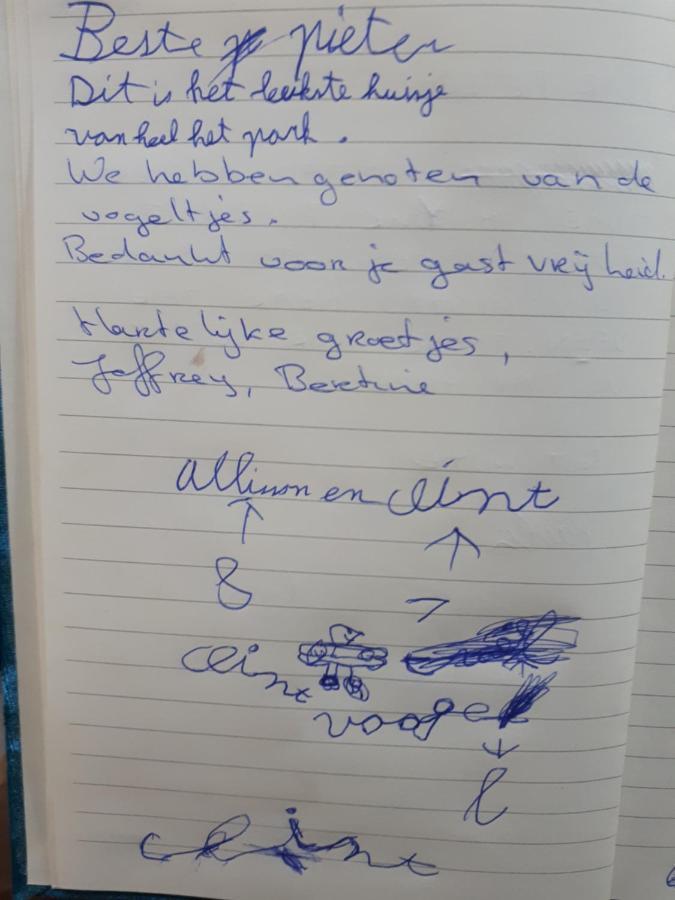 Beste pieter
Dit is het leukste huisje
van heel het park.
We hebben genoten van de
vogeltjes.
Bedankt voor je gast vrijheid.
Hartelijke groetjes,
Jeffrey, Beretine
Allison en clint
8 7
clint
vooge
l
clint